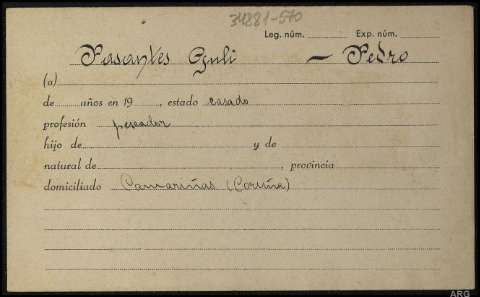 34281-570
Leg. núm. Exp. núm.
Pasantes Guli — Pedro
(a)
de años en 19 , estado casado
profesión pescador
hijo de y de
natural de , provincia
domiciliado Camariñas (Coruña)
ARG